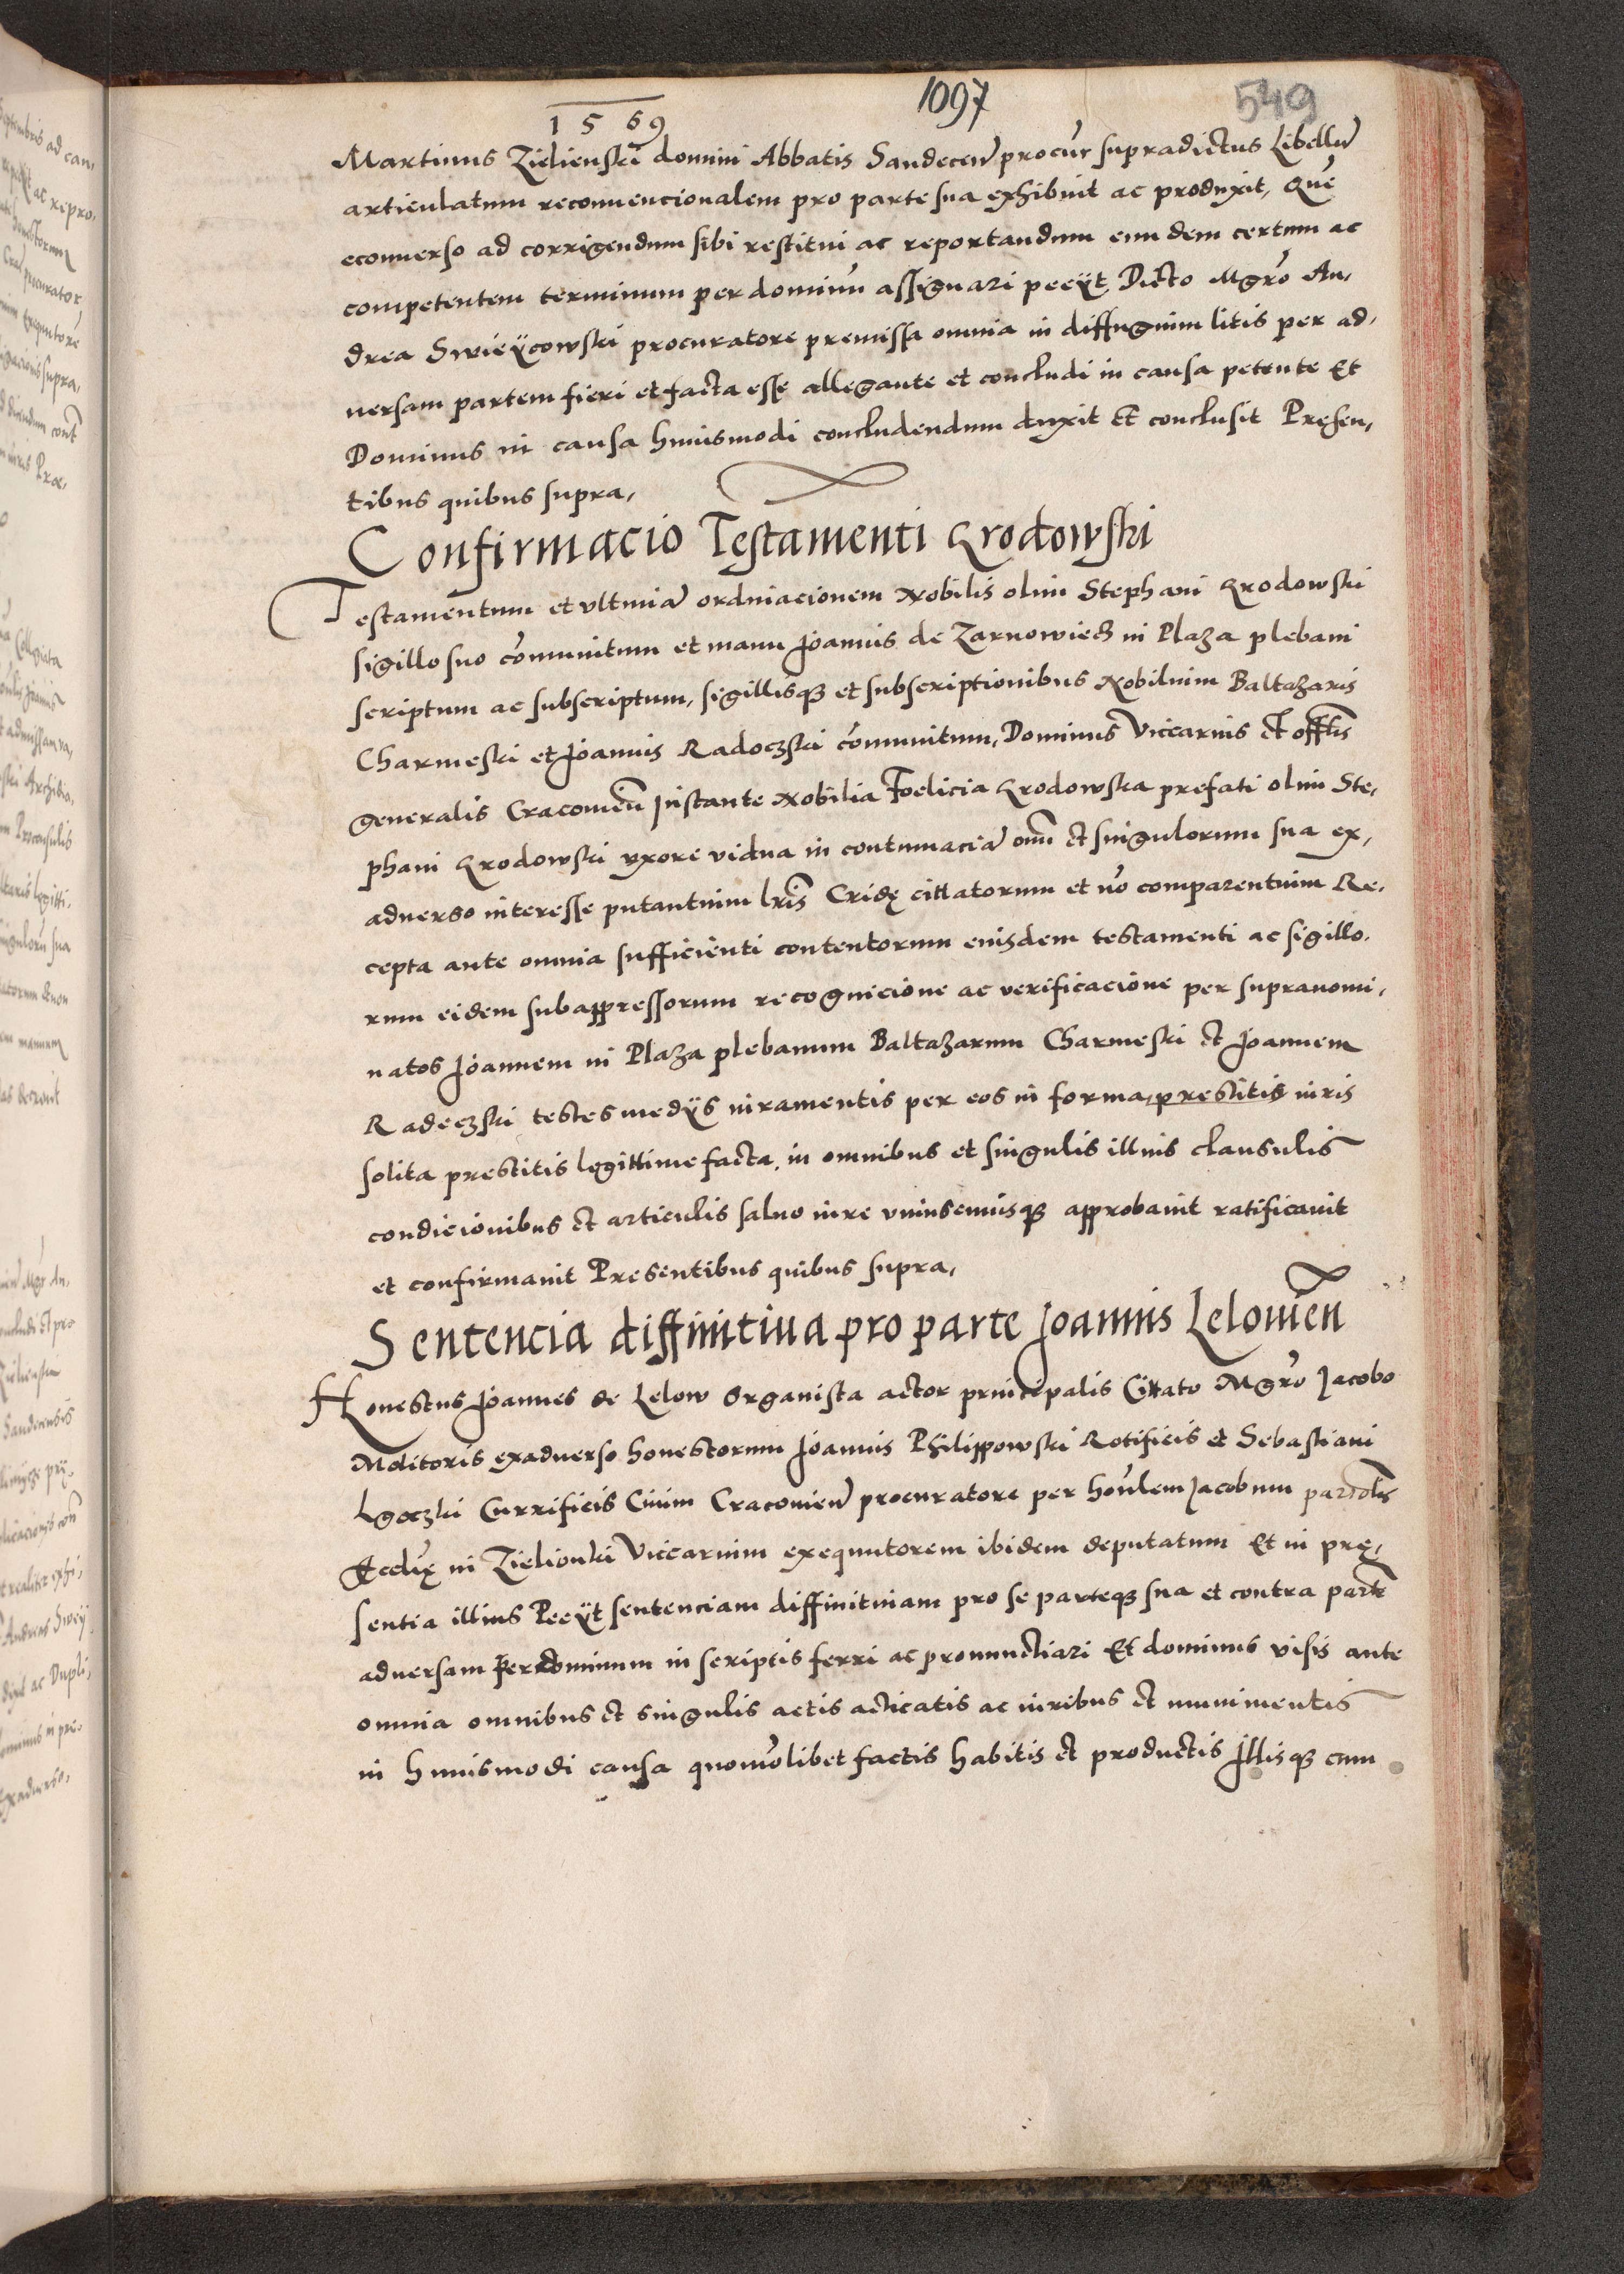 1569
1097
549
Martinus Zielienski domini Abbatis Sandecen procur supradictus Libellu
articulatum reconuencionalem pro parte sua exhibuit ac produxit, Que
econuerso ad corrigendum sibi restitui ac reportandum eundem certum ac
competentem terminum per dominu assignari peeÿt Dicto Mgro An,
drea Swieÿcowski procuratore premissa omnia in diffugium litis per ad,
uersam partem fieri et facta esse allegante et concludi in causa petente Et
Dominus in causa huiusmodi concludendum duxit Et conclusit Presen,
tibus quibus supra,
Confirmacio Testamenti Grodowski
Testamentum et vltima ordinacionem Nobilis olim Stephani Grodowski
sigillo suo comunitum et manu Joannis de Zarnowiecz in Plaza plebani
scriptum ac subscriptum, sigillisq3 et subscriptionibus Nobilium Baltazaris
Charmeski et Joannis Radoczski comunitum, Dominus Viccarius et offlis
generalis Cracouien Instante Nobilia Foelicia Grodowska prefati olim Ste,
phani Grodowski vxore vidua in contumacia oim et singulorum sua ex,
aduerso interesse putantuim lris Cridę cittatorum et no comparentuim Re,
cepta ante omnia sufficienti contentorum eiusdem testamenti ac sigillo,
rum eidem subappressorum recognicione ac verificacione per supranomi,
natos Joannem in Plaza plebanum Baltazarum Charmeski et Joannem
Radeczski testes medÿs iuramentis per eos in forma, prestitis iuris
solita prestitis legittime facta, in omnibus et singulis illius clausulis
condicionibus et articulis saluo iure vniuscuiusq3 approbauit ratificauit
et confirmauit Presentibus quibus supra,
Sentencia diffinitiua pro parte Joannis Lelouien
Honestus Joannes de Lelow Organista actor principalis Cittato Mgro Jacobo
Molitoris exaduerso honestorum Joannis Philippowski Rotificis et Sebastiani
Lgoczki Currificis Ciuim Cracouien procuratore per honlem Jacobum parrolis
Ecclię in Zielionki Viccarium exequutorem ibidem deputatum Et in prę,
sentia illius Peeÿt sentenciam diffinituiam pro se parteq3 sua et contra parte
aduersam per dominum in scriptis ferri ac pronunctiari Et dominus visis ante
omnia omnibus et singulis actis acticatis ac iuribus et munimentis
in huiusmodi causa quomolibet factis habitis et productis Illisq3 cum